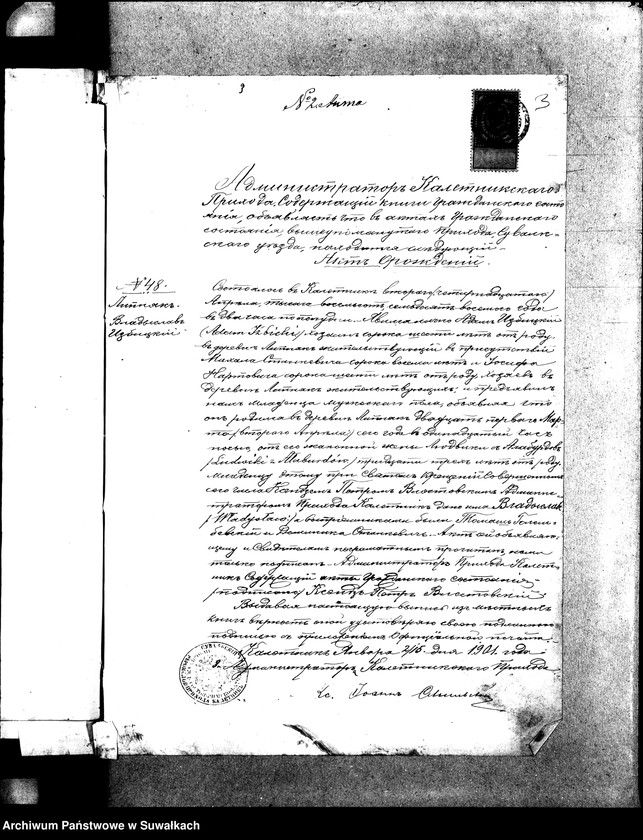 3
№ 2. Акта
3
Администраторъ Калетникскаго
Прихода, Содержащій книги гражданскаго состо
янія, объявляетъ что въ актахъ гражданскаго
состоянія вышеупомянутаго прихода, Сувалк-
скаго уѣзда, находится слѣдующій
Актъ о рожденіи.
№ 48.
Липнякъ.
Владыславъ
Избицкій
Состоялось въ Калетникѣ втораго (четырнадцатаго)
Апрѣля, тысяча восемьсотъ семьдесятъ восьмаго года
въ два часа пополудни. Явился лично Адамъ Избицкій
(Adam Izbicki) хозяинъ сорока шести лѣтъ отъ роду,
въ деревнѣ Липнякъ жительствующій въ присутствіи
Михала Станкевича сорока восьми лѣтъ и Іосифа
Нартовича сорока шести лѣтъ отъ роду, хозяевъ въ
деревнѣ Липнякъ жительствующихъ, и предъявилъ
намъ младенца мужескаго пола, объявляя что
онъ родился въ деревнѣ Липнякъ двадцать перваго Мар-
та (втораго Апрѣля) сего года въ одинадцатый часъ
ночью, отъ его законной жены Людвики
(Ludwiki z) тридцати трехъ лѣтъ отъ роду.
Младенцу этому при Святомъ Крещеніи Совершенномъ
сего числа Ксендзомъ Петромъ Админи-
страторомъ Прихода Калетникъ дано имя Владыславъ
(Władysław) а воспріемниками были Томашъ
и Станкевичъ. Актъ сей объявляю-
щему и Свидѣтелямъ неграмотнымъ прочитанъ, нами
только подписанъ. Администраторъ Прихода Калет-
никъ Содержащій акты гражданскаго состоянія
(подписано) Ксендзъ Петръ
Выдавая настоящую выпись изъ мѣстныхъ
книгъ вѣрность оной удостовѣряю своею подлинною
подписью съ приложеніемъ Оффиціальной печати.
Калетникъ Января 2/15 дня 1901 года
Администраторъ Калетникскаго Прихода
Кс.
Archiwum Państwowe w Suwałkach